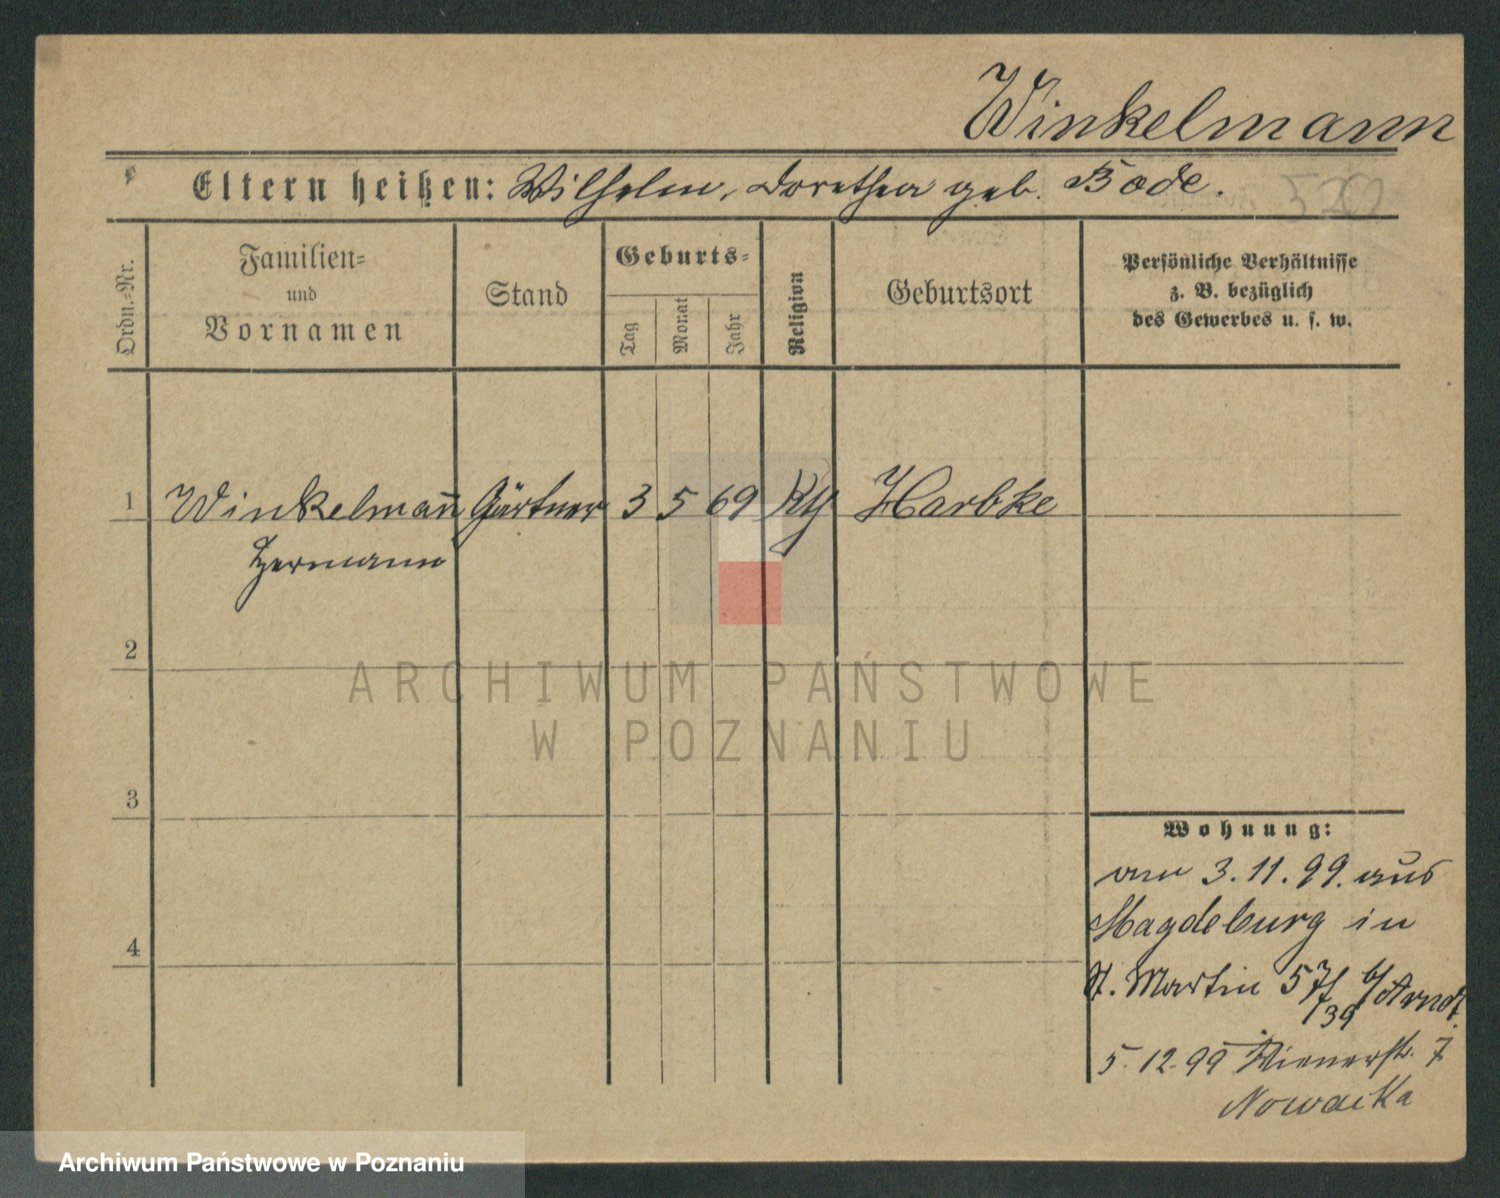 Winkelmann
Eltern heißen: Wilhelm, Dorothea geb. Bode.
Ordn.=Nr.
Familien=
und
Vornamen
Stand
Geburts=
Tag
Monat
Jahr
Religion
Geburtsort
Persönliche Verhältnisse
z. B. bezüglich
des Gewerbes u. s. w.
1 Winkelmann̅ Gärtner 3 5 69 Harbke
Hermann
2
3
4
Wohnung:
am 3. 11. 99. aus
Magdeburg in
St. Martin 57/39 b/Arndt.
5. 12. 99 Wienerstr. 7
Nowacka
ARCHIWUM PAŃSTWOWE
W POZNANIU
Archiwum Państwowe w Poznaniu